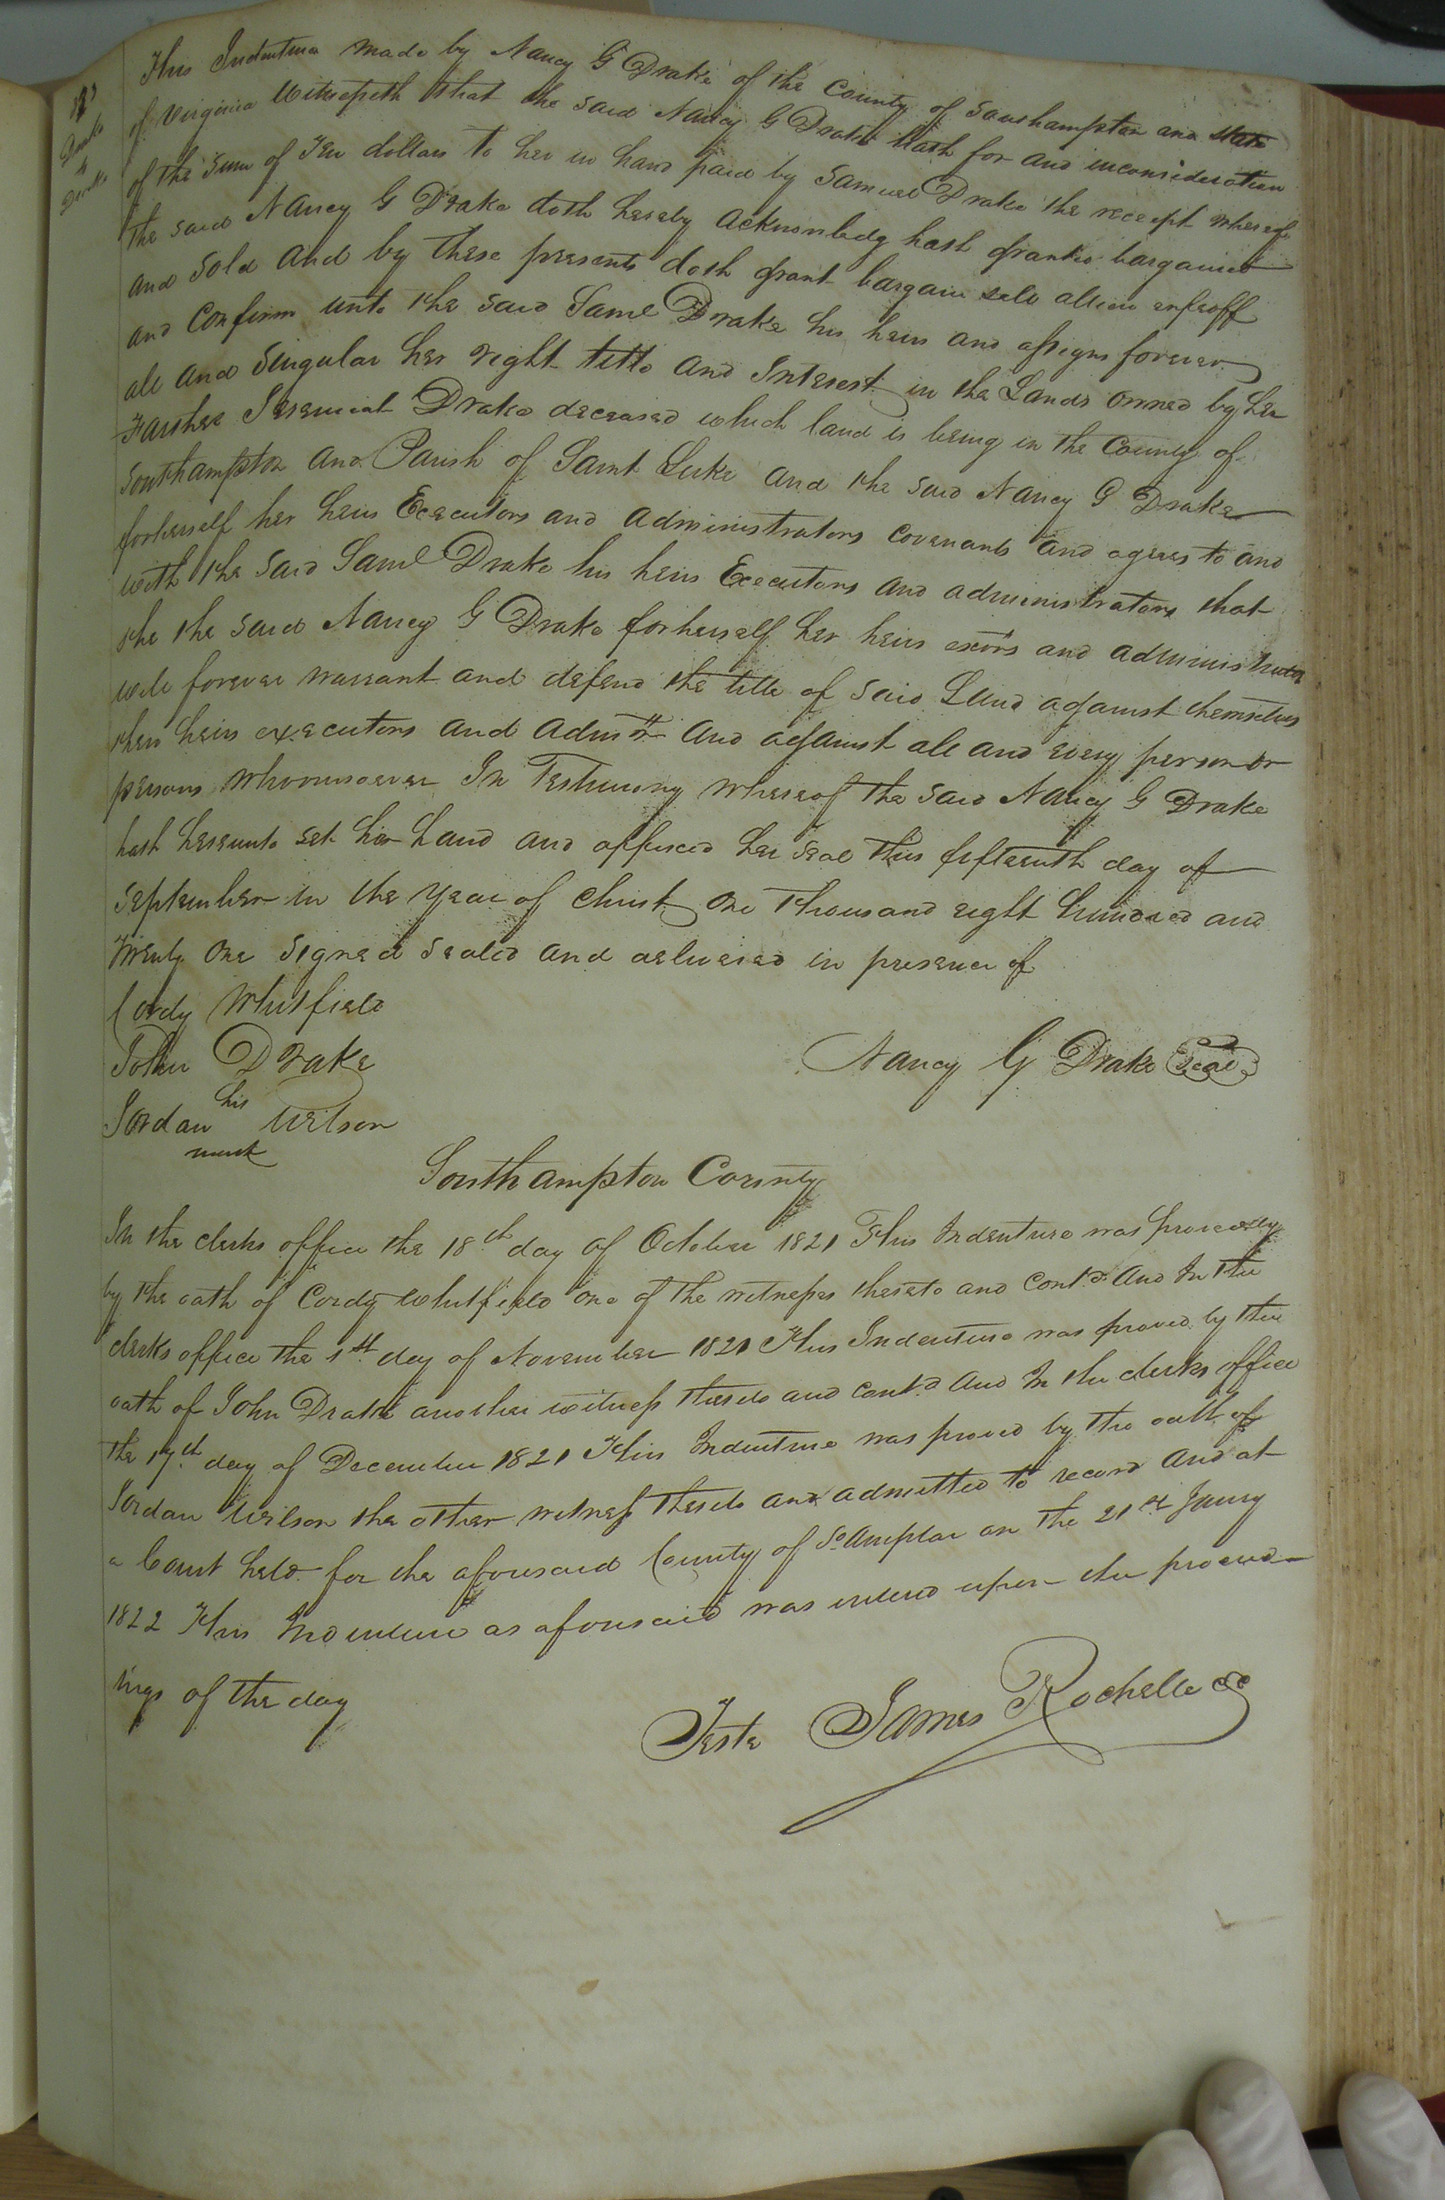 Drake
to
Drake
This Indenture made by Nancy G Drake of the County of Southampton and State
of Virginia Witnesseth that the said Nancy G Drake hath for and inconsideration
of the sum of Ten dollars to her in hand paid by Samuel Drake the receipt whereof
the said Nancy G Drake doth hereby acknowledg hath granted bargained
and sold and by these presents doth grant bargain sell alien enfeoff
and Confirm unto the said Saml Drake his heirs and assigns forever
all and Singular her right title and Interest in the Lands owned by her
Farther Jeremiah Drake deceased which land is being in the County of
Southampton and Parish of Saint Luke and the said Nancy G Drake
forherself her heirs Executors and administrators covenants and agrees to and
with the said Saml Drake his heirs Executors and administrators that
the the said Nancy G Drake forherself her heirs exors and administrators
will forever warrant and defend the title of said Land against themselves
their heirs executors and admrs and against all and every person or
persons whoomsoever In Testimony whereof the said Nancy G Drake
hath hereunto set her hand and affixed her seal this fifteenth day of
September in the year of Christ One Thousand eight hundred and
Twenty One signed sealed and delivered in presence of
Cordy Whitfield
John Drake
Nancy G Drake Seal
his
Jordan Wilson
mark
Southampton County
In the clerks office the 18th day of October 1821 This Indenture was proved
by the oath of Cordy Whitfield one of the witnesses thereto and contd And In the
clerks office the 1st day of November 1821 This Indenture was proved by the
oath of John Drake another witness thereto and contd And In the clerks office
the 17th day of December 1821 This Indenture was proved by the oath of
Jordan Wilson the other witness thereto and admitted to record And at
a Court held for the aforesaid County of So:ampton on the 21st Jany
1822 This Indenture as aforesaid was entered upon the proceed
ings of the day
Teste James Rochelle CC